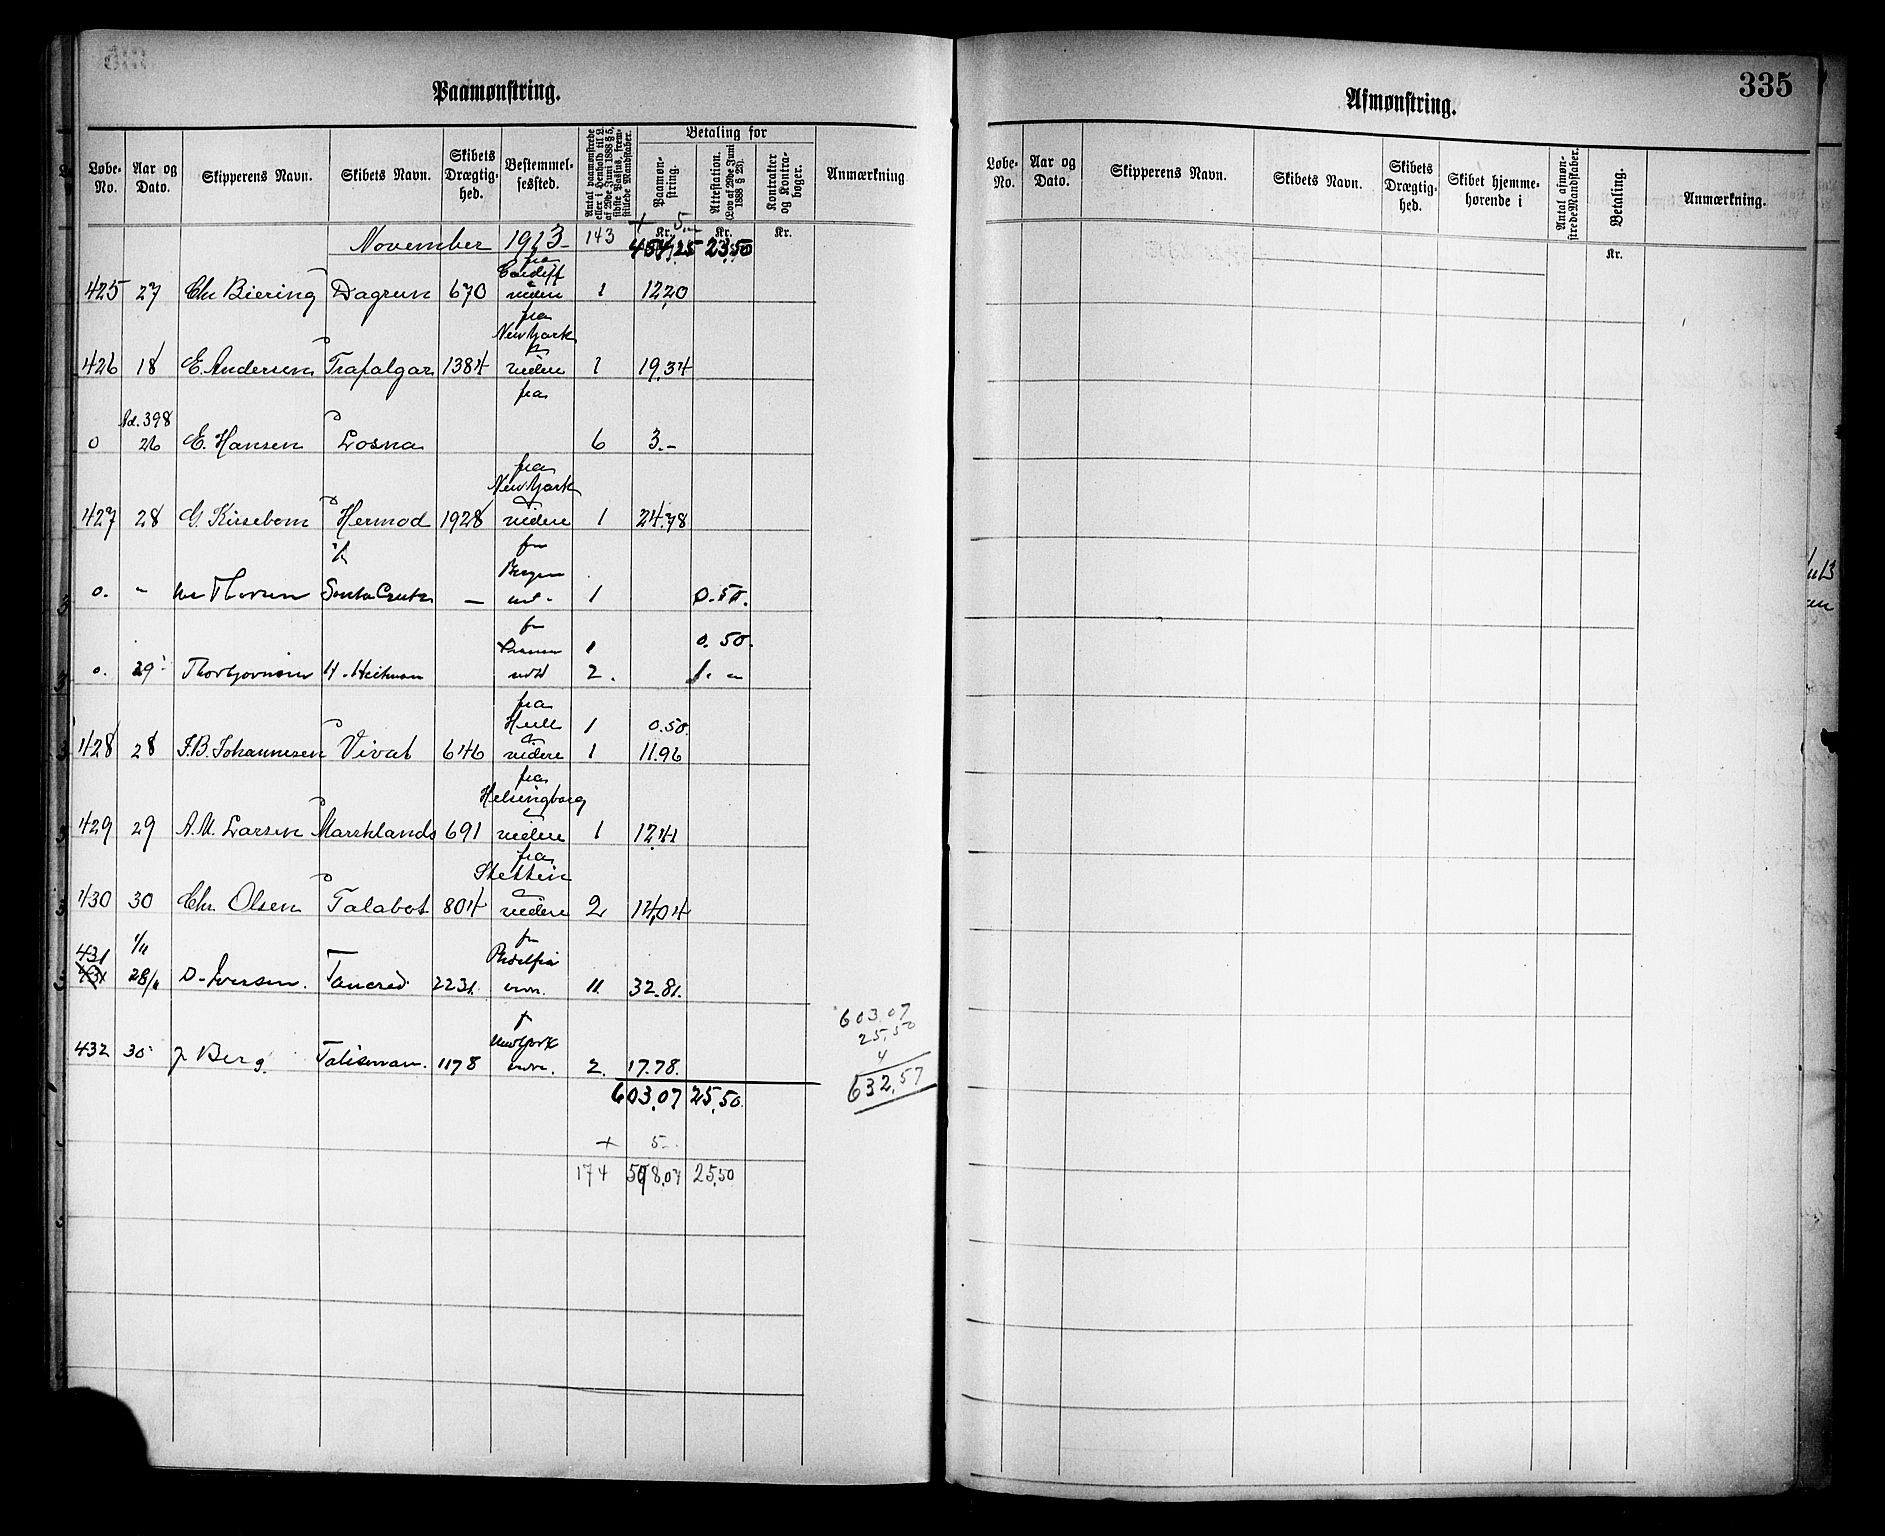 Paamønstring.
Løbe-No. | Aar og Dato. | Skipperens Navn. | Skibets Navn. | Skibets Drægtig-hed. | Bestemmel-sessted. | Antal paamønstrede eller i Henhold til L. af 29de Juni 1888 § 5, sidste Passus, frem-stillede Mandskaber. | Betaling for | Paamøn-string. | Attestation. (Lov af 29de Juni 1888 § 28). | Kontrakter og Kontra-bøger. | Anmærkning
Kr. Kr. Kr.
+ 5.-
November 1913 143 454,25 23,50
fra
Cardiff
425 27 Chr Biering Dagrun 670 videre 1 12,20
fra
New York
426 18 E. Andersen Trafalgar 1384 videre 1 19,34
fra
Ad. 398
0 26 E. Hansen Losna 6 3.-
fra
New York
427 28 G. Kirsebom Hermod 1928 videre 1 24.78
fr
Bergen
0. " Thorsen Santa Cruz — 1 0.50.
fr
1 0.50.
0. 29 Thorbjørnsen H. Heitman 2. 1. "
fra
Hull 1 0.50
428 28 F.B. Johannesen Vivat 646 videre 1 11.96
fra
Helsingborg
429 29 A.M. Larsen Marsklands 691 videre 1 12,41
fra
Stettin
430 30 Chr. Olsen Talabot 804 videre 2 14,04
431 1/11 fr
431 28/11 O. Iversen. Tancred 2231. 11 32.81.
New York
432 30 J Berg. Talisman. 1178 2. 17.78.
603,07 25,50
+ 5-
174 598,07 25,50
603,07
25,50
4
632,57
335
Afmønstring.
Løbe-No. | Aar og Dato. | Skipperens Navn. | Skibets Navn. | Skibets Drægtig-hed. | Skibet hjemme-hørende i | Antal afmøn-strede Mandskaber. | Betaling. | Anmærkning.
Kr.